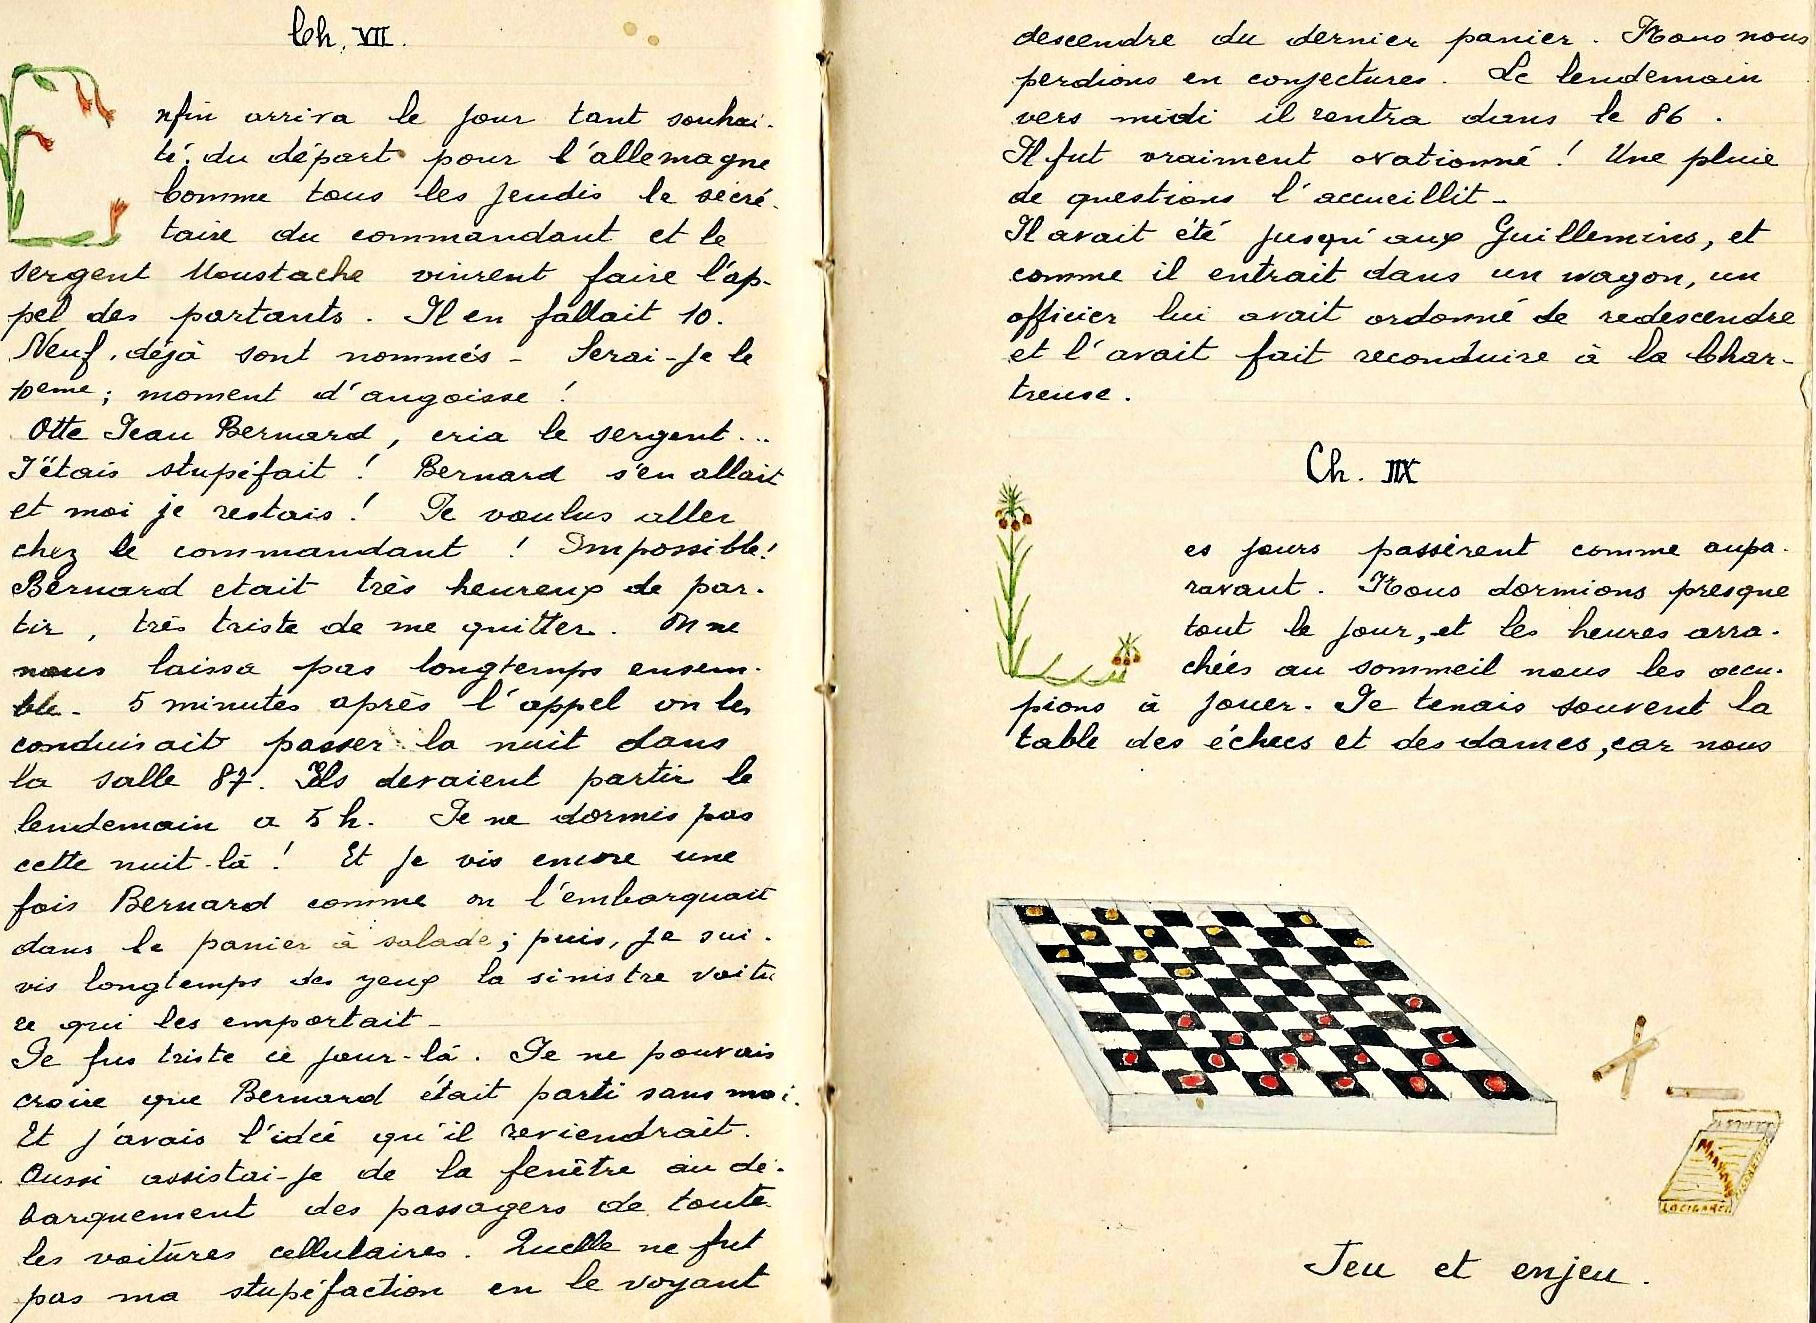 Ch. VII.
nfin arriva le jour tant souhai-
té du départ pour l'allemagne
Comme tous les jeudis le sécré-
taire du commandant et le
sergent Moustache vinrent faire l'ap-
pel des partants. Il en fallait 10.
Neuf, déjà sont nommés - Serai-je le
10eme; moment d'angoisse !
Otte Jean Bernard, cria le sergent...
J'étais stupéfait ! Bernard s'en allait
et moi je restais ! Je voulus aller
chez le commandant ! Impossible!
Bernard etait très heureux de par-
tir, très triste de me quitter. On ne
nous laissa pas longtemps ensem-
ble - 5 minutes après l'appel on les
conduisait passer la nuit dans
la salle 87. Ils devaient partir le
lendemain a 5 h. Je ne dormis pas
cette nuit-là ! Et je vis encore une
fois Bernard comme on l'embarquait
dans le panier à salade; puis, je sui-
vis longtemps des yeux la sinistre voitu
re qui les emportait -
Je fus triste ce jour-là. Je ne pouvais
croire que Bernard était parti sans moi.
Et j'avais l'idée qu'il reviendrait.
Aussi assistai-je de la fenêtre au dé-
barquement des passagers de toute
les voitures cellulaires. Quelle ne fut
pas ma stupéfaction en le voyant
descendre du dernier panier. Nous nous
perdions en conjectures. Le lendemain
vers midi il rentra dans le 86.
Il fut vraiment ovationné ! Une pluie
de questions l'accueillit -
Il avait été jusqu'aux Guillemins, et
comme il entrait dans un wagon, un
officier lui avait ordonné de redescendre
et l'avait fait reconduire à la Char-
treuse.
Ch. IIX
es jours passèrent comme aupa-
ravant. Nous dormions presque
tout le jour, et les heures arra-
chées au sommeil nous les occu-
pions à jouer. Je tenais souvent la
table des échecs et des dames, car nous
Jeu et enjeu.